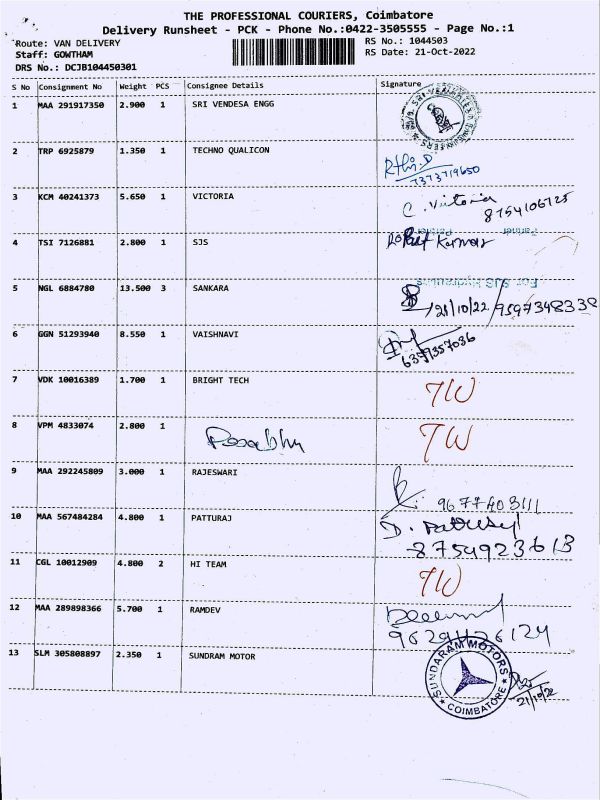 THE PROFESSIONAL COURIERS, Coimbatore
Delivery Runsheet - PCK - Phone No.:0422-3505555 - Page No.:1
Route: VAN DELIVERY
RS No.: 1044503
Staff: GOWTHAM
RS Date: 21-Oct-2022
DRS No.: DCJB104450301
S No Consignment No Weight PCS Consignee Details Signature
1 MAA 291917350 2.900 1 SRI VENDESA ENGG
2 TRP 6925879 1.350 1 TECHNO QUALICON
7373719650
3 KCM 40241373 5.650 1 VICTORIA C. Victoria
8754106725
4 TSI 7126881 2.800 1 SJS
Partner
5 NGL 6884780 13.500 3 SANKARA
21/10/22/9597348338
6 GGN 51293940 8.550 1 VAISHNAVI
6379357036
7 VDK 10016389 1.700 1 BRIGHT TECH TW
8 VPM 4833074 2.800 1 TW
9 MAA 292245809 3.000 1 RAJESWARI
9677403111
10 MAA 567484284 4.800 1 PATTURAJ
8754923613
11 CGL 10012909 4.800 2 HI TEAM TW
12 MAA 289898366 5.700 1 RAMDEV
13 SLM 305808897 2.350 1 SUNDRAM MOTOR
SUNDARAM MOTORS
COIMBATORE
21/10/22